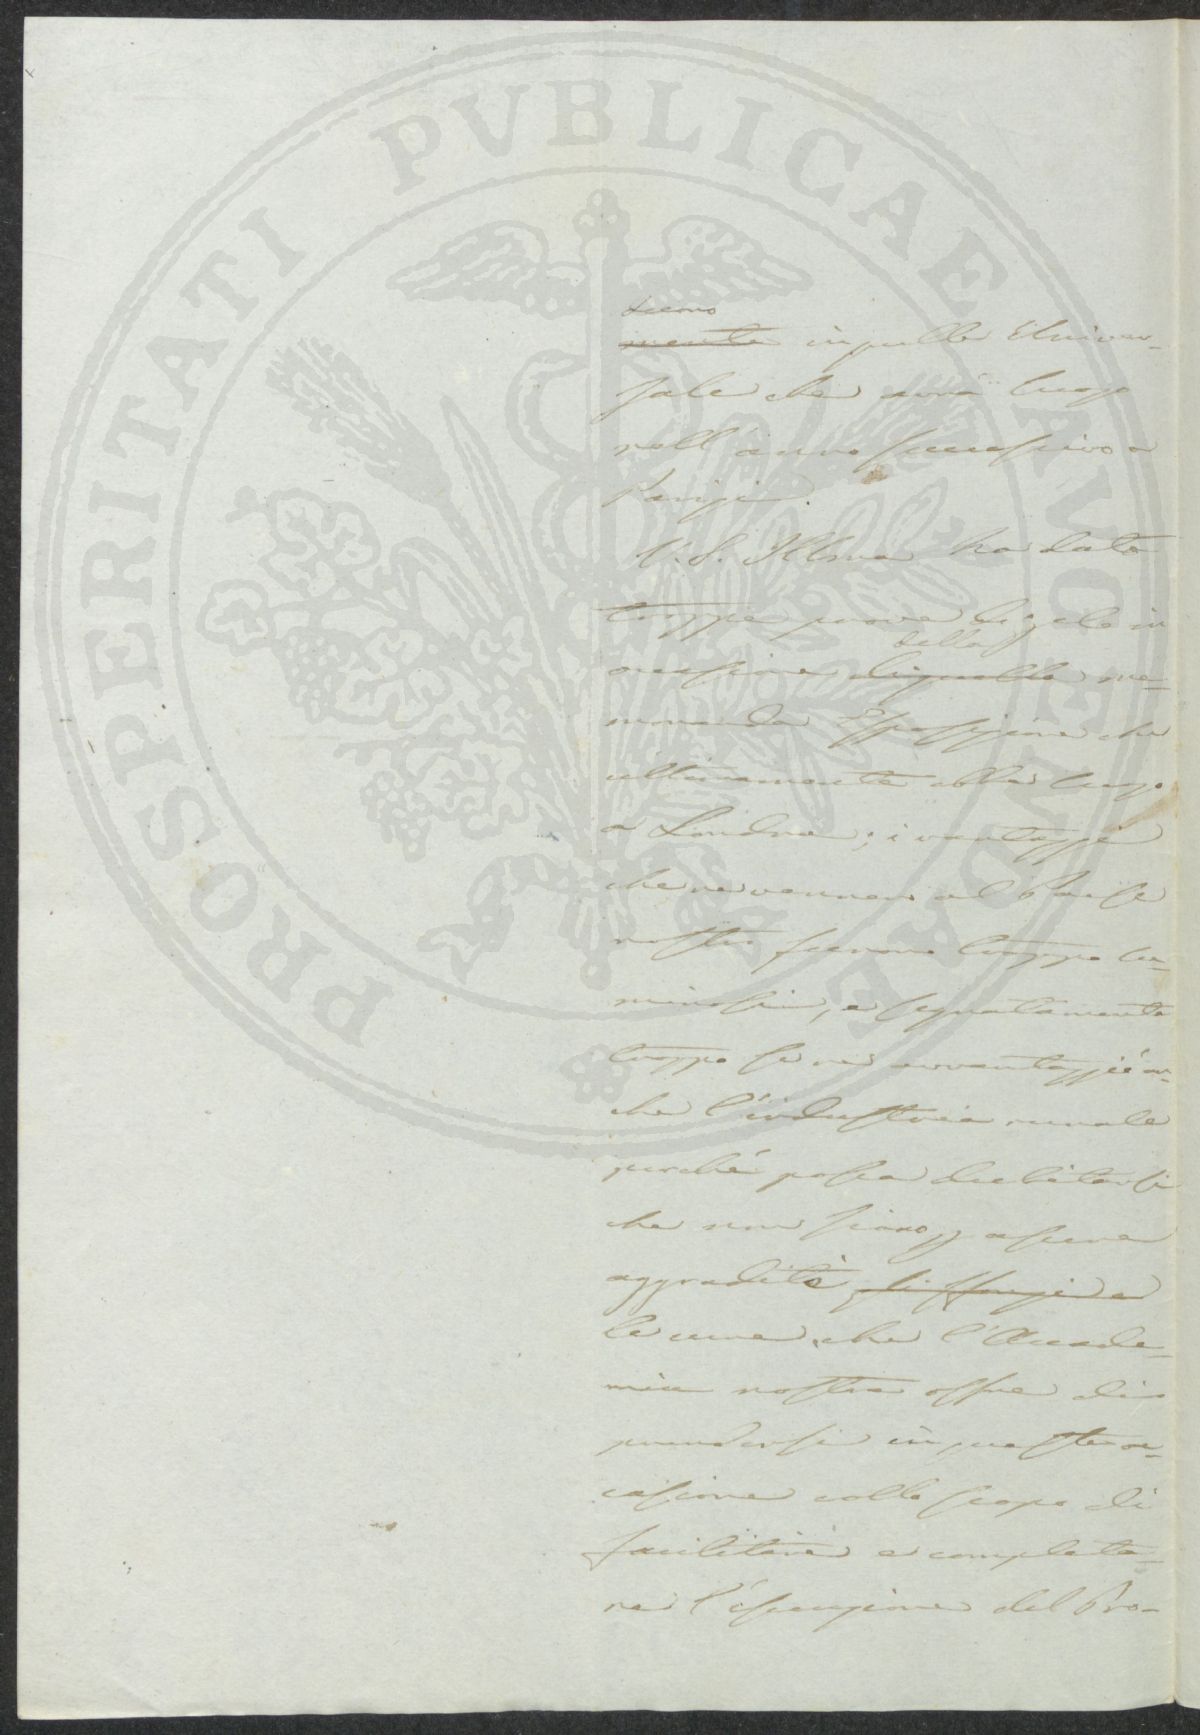 PROSPERITATI PVBLICAE AVGENDAE
in quella Univer-
sale che avrà luogo
nell'anno successivo a
Parigi.
V. S. Illma ha date
troppe prove di zelo in
della
occasione di quella me-
moranda Esposizione che
ultimamente ebbe luogo
a Londra; i vantaggi
che ne vennero al Paese
nostro furono troppo lu-
minosi, e segnatamente
troppo se ne avvantaggiò an-
che l'industria rurale
perchè possa dubitarsi
che non siano p essere
aggradite
le cure, che l'Accade-
mia nostra offre di
prendersi in questa oc-
casione collo scopo di
facilitare e completa-
re l'esecuzione del Pro-